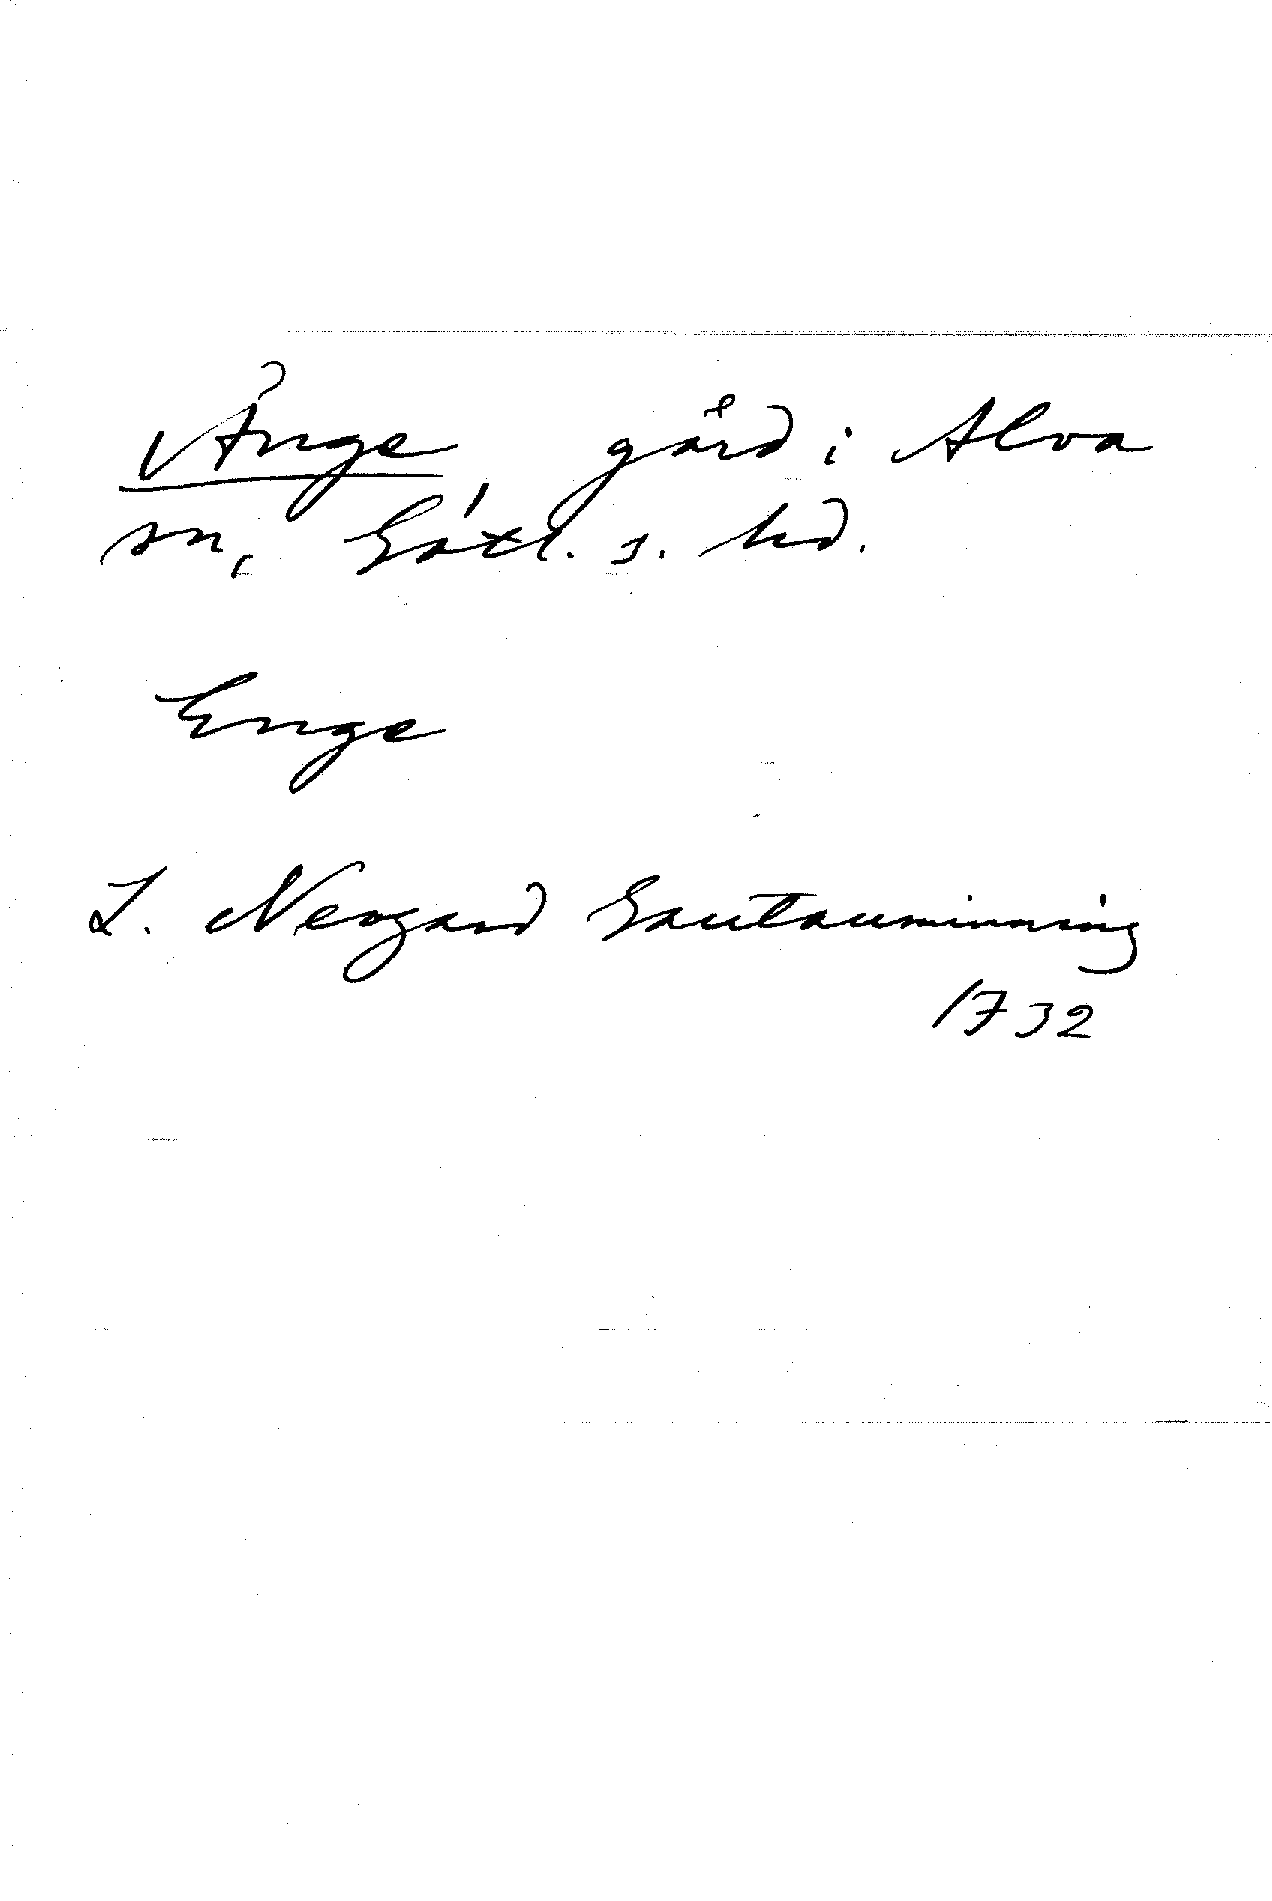 Änge, gård i Alva
sn, Gotl. s. hd.
Enge
L. Neogard Gautauminning
1732